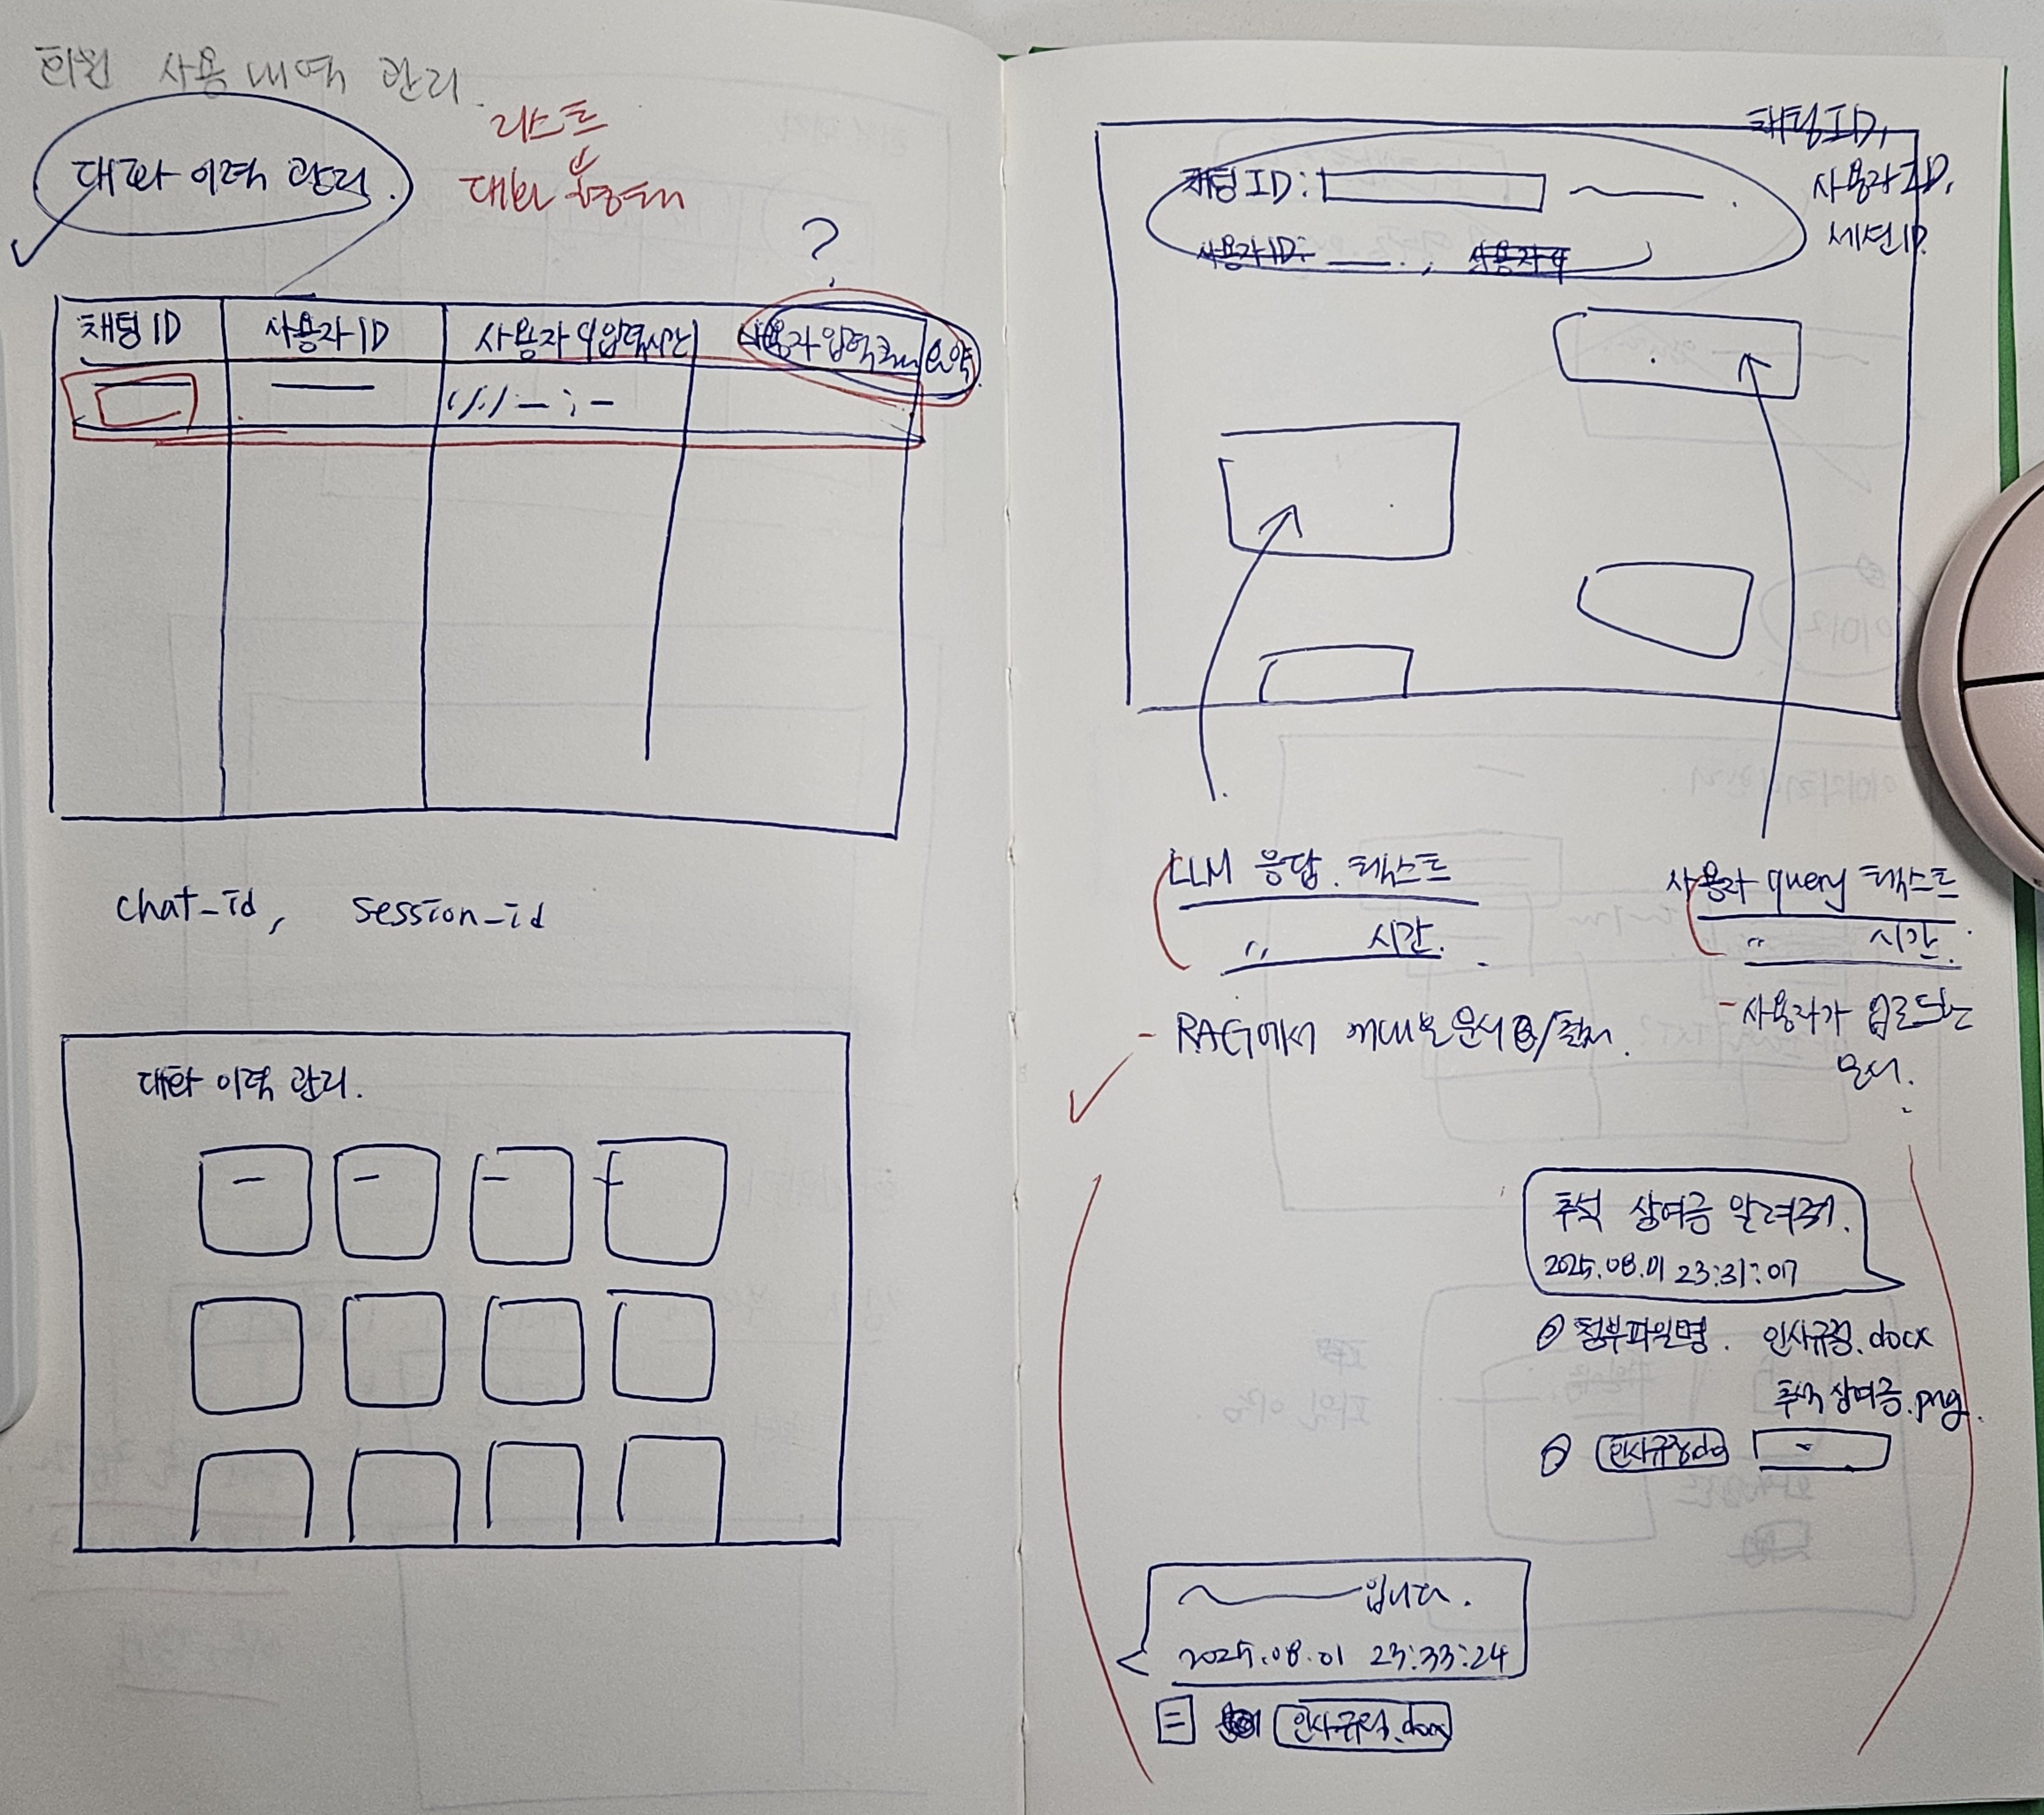 회원 사용 내역 관리.
대화 이력 관리.
리스트
대화
?
채팅 ID
사용자 ID
사용자 입력시간
사용자 입력 요약
chat_id, session_id
대화 이력 관리.
채팅 ID,
사용자 ID,
세션 ID.
채팅 ID:
사용자 ID: , 사용자
LLM 응답 텍스트
〃 시간.
- RAG에서 문서 /출처.
사용자 query 텍스트
〃 시간.
- 사용자가 업로드한
문서.
추석 상여금 알려줘.
2025.08.01 23:31:07
첨부파일명. 인사규정.docx
추석 상여금.png
인사규정.do
입니다.
2025.08.01 23:33:24
인사규정.docx